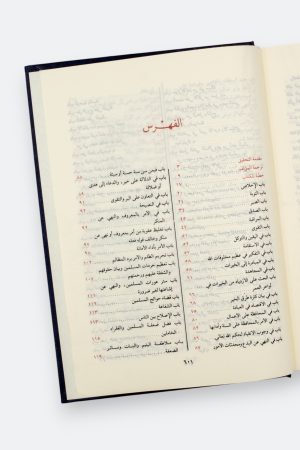 الفهرس
مقدمة التحقيق
ترجمة المؤلف
خطبة الكتاب
باب الإخلاص
باب التوبة
باب الصبر
باب الصدق
باب المراقبة
باب التقوى
باب في اليقين والتوكل
باب في الاستقامة
باب في التفكر في عظيم مخلوقات الله
باب في المبادرة إلى الخيرات
باب في المجاهدة
باب الحث على الازدياد من الخيرات في
أواخر العمر
باب في بيان كثرة طرق الخير
باب في الاقتصاد في العبادة
باب في المحافظة على الأعمال
باب في الأمر بالمحافظة على السنة وآدابها
باب في وجوب الانقياد لحكم الله تعالى
باب في النهي عن البدع ومحدثات الأمور
باب فيمن سن سنة حسنة أو سيئة
باب في الدلالة على خير والدعاء إلى هدى
أو ضلالة
باب في التعاون على البر والتقوى
باب في النصيحة
باب في الأمر بالمعروف والنهي عن
المنكر
باب تغليظ عقوبة من أمر بمعروف أو نهى عن
منكر وخالف قوله فعله
باب الأمر بأداء الأمانة
باب تحريم الظلم والأمر برد المظالم
باب تعظيم حرمات المسلمين وبيان حقوقهم
والشفقة عليهم ورحمتهم
باب ستر عورات المسلمين والنهي عن
إشاعتها لغير ضرورة
باب قضاء حوائج المسلمين
باب الشفاعة
باب الإصلاح بين الناس
باب فضل ضعفة المسلمين والفقراء
الخاملين
باب ملاطفة اليتيم والبنات وسائر
الضعفة
٦٠١